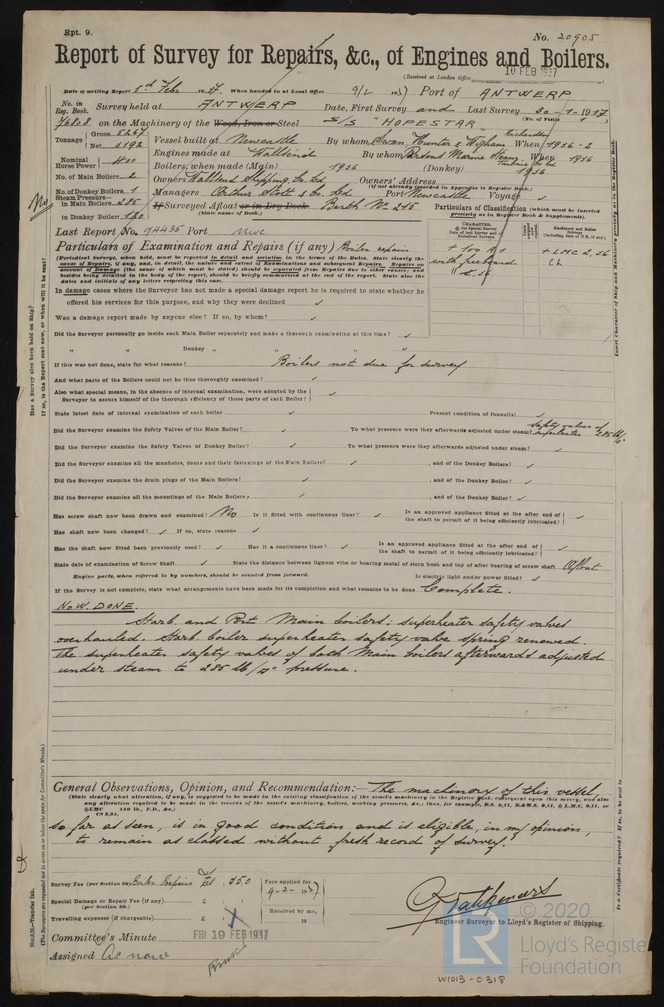 Rpt. 9.
No. 20905
Report of Survey for Repairs, &c., of Engines and Boilers.
(Received at London Office 10 FEB 1937
Date of writing Report 5th Feb 1937 When handed in at Local Office 9/2 1937 Port of ANTWERP
No. in Reg. Book. Survey held at ANTWERP Date, First Survey and Last Survey 30-1-1937
on the Machinery of the Wood, Iron or Steel S/S "HOPESTAR" (No. of Visits 1)
Tonnage Gross 5267 Net 3192 Vessel built at Newcastle By whom Swan, Hunter & Wigham Richardson When 1936-2
Nominal Horse Power 400 Engines made at Wallsend By whom Parsons Marine Steam Turbine Co Ld When 1936
Boilers, when made (Main) 1936 (Donkey) 1936
No. of Main Boilers 2 Owners Wallsend Shipping Co. Ld Owners' Address
(if not already recorded in Appendix to Register Book.)
No. of Donkey Boilers 1 Managers Arthur Stott & Co. Ld Port Newcastle Voyage
Steam Pressure— in Main Boilers 225 If Surveyed Afloat or in Dry Dock Berth No 245
(State name of Dock.)
in Donkey Boiler 120
Particulars of Classification (which must be inserted precisely as in Register Book & Supplements).
Last Report No. 94435 Port Nwc
Particulars of Examination and Repairs (if any) Boiler repairs
+ 100 A1
with freeboard
+ LMC 2,36
(Periodical Surveys, when held, must be reported in detail and seriatim in the terms of the Rules. State clearly the cause of Repairs, if any, and, in detail, the nature and extent of Examinations and subsequent Repairs. Repairs on account of Damage (the cause of which must be stated) should be separated from Repairs due to other causes; and besides being detailed in the body of the report, should be briefly summarised at the end of the report. State also the dates and initials of any letters respecting this case.
In damage cases where the Surveyor has not made a special damage report he is required to state whether he
offered his services for this purpose, and why they were declined
Was a damage report made by anyone else? If so, by whom?
Did the Surveyor personally go inside each Main Boiler separately and make a thorough examination at this time?
" " Donkey " " "
If this was not done, state for what reasons? Boilers not due for survey
And what parts of the Boilers could not be thus thoroughly examined?
Also what special means, in the absence of internal examination, were adopted by the Surveyor to assure himself of the thorough efficiency of those parts of each Boiler?
State latest date of internal examination of each boiler Present condition of funnel(s)
Did the Surveyor examine the Safety Valves of the Main Boiler? To what pressure were they afterwards adjusted under steam? Safety valves of superheater 235 lb/□"
Did the Surveyor examine the Safety Valves of Donkey Boiler? To what pressure were they afterwards adjusted under steam?
Did the Surveyor examine all the manholes, doors and their fastenings of the Main Boilers? , and of the Donkey Boiler?
Did the Surveyor examine the drain plugs of the Main Boilers? , and of the Donkey Boiler?
Did the Surveyor examine all the mountings of the Main Boilers? , and of the Donkey Boiler?
Has screw shaft now been drawn and examined? No Is it fitted with continuous liner? Is an approved appliance fitted at the after end of the shaft to permit of it being efficiently lubricated?
Has shaft now been changed? If so, state reasons
Has the shaft now fitted been previously used? Has it a continuous liner? Is an approved appliance fitted at the after end of the shaft to permit of it being efficiently lubricated?
State date of examination of Screw Shaft State the distance between lignum vitæ or bearing metal of stern bush and top of after bearing of screw shaft Afloat
Engine parts, when referred to by numbers, should be counted from forward. Is electric light and/or power fitted?
If the Survey is not complete, state what arrangements have been made for its completion and what remains to be done. Complete.
Now DONE.
Starb. and Port Main boilers: superheater safety valves
overhauled. Starb. boiler superheater safety valve spring renewed.
The superheater safety valves of both Main boilers afterwards adjusted
under steam to 235 lb/□" pressure.
General Observations, Opinion, and Recommendation:— The machinery of this vessel,
so far as seen, is in good condition and is eligible, in my opinion,
to remain as classed without fresh record of survey.
Survey Fee (per Section 29) Boiler Repairs £ : 35.0 Fees applied for 9-2-1937
Special Damage or Repair Fee (if any) (per Section 29.) £ : : Received by me,
Travelling expenses (if chargeable) £ : : 19
Engineer Surveyor to Lloyd's Register of Shipping.
Committee's Minute FRI 19 FEB 1937
Assigned As now
© 2020
LR
Lloyd's Register
Foundation
W1013-0318